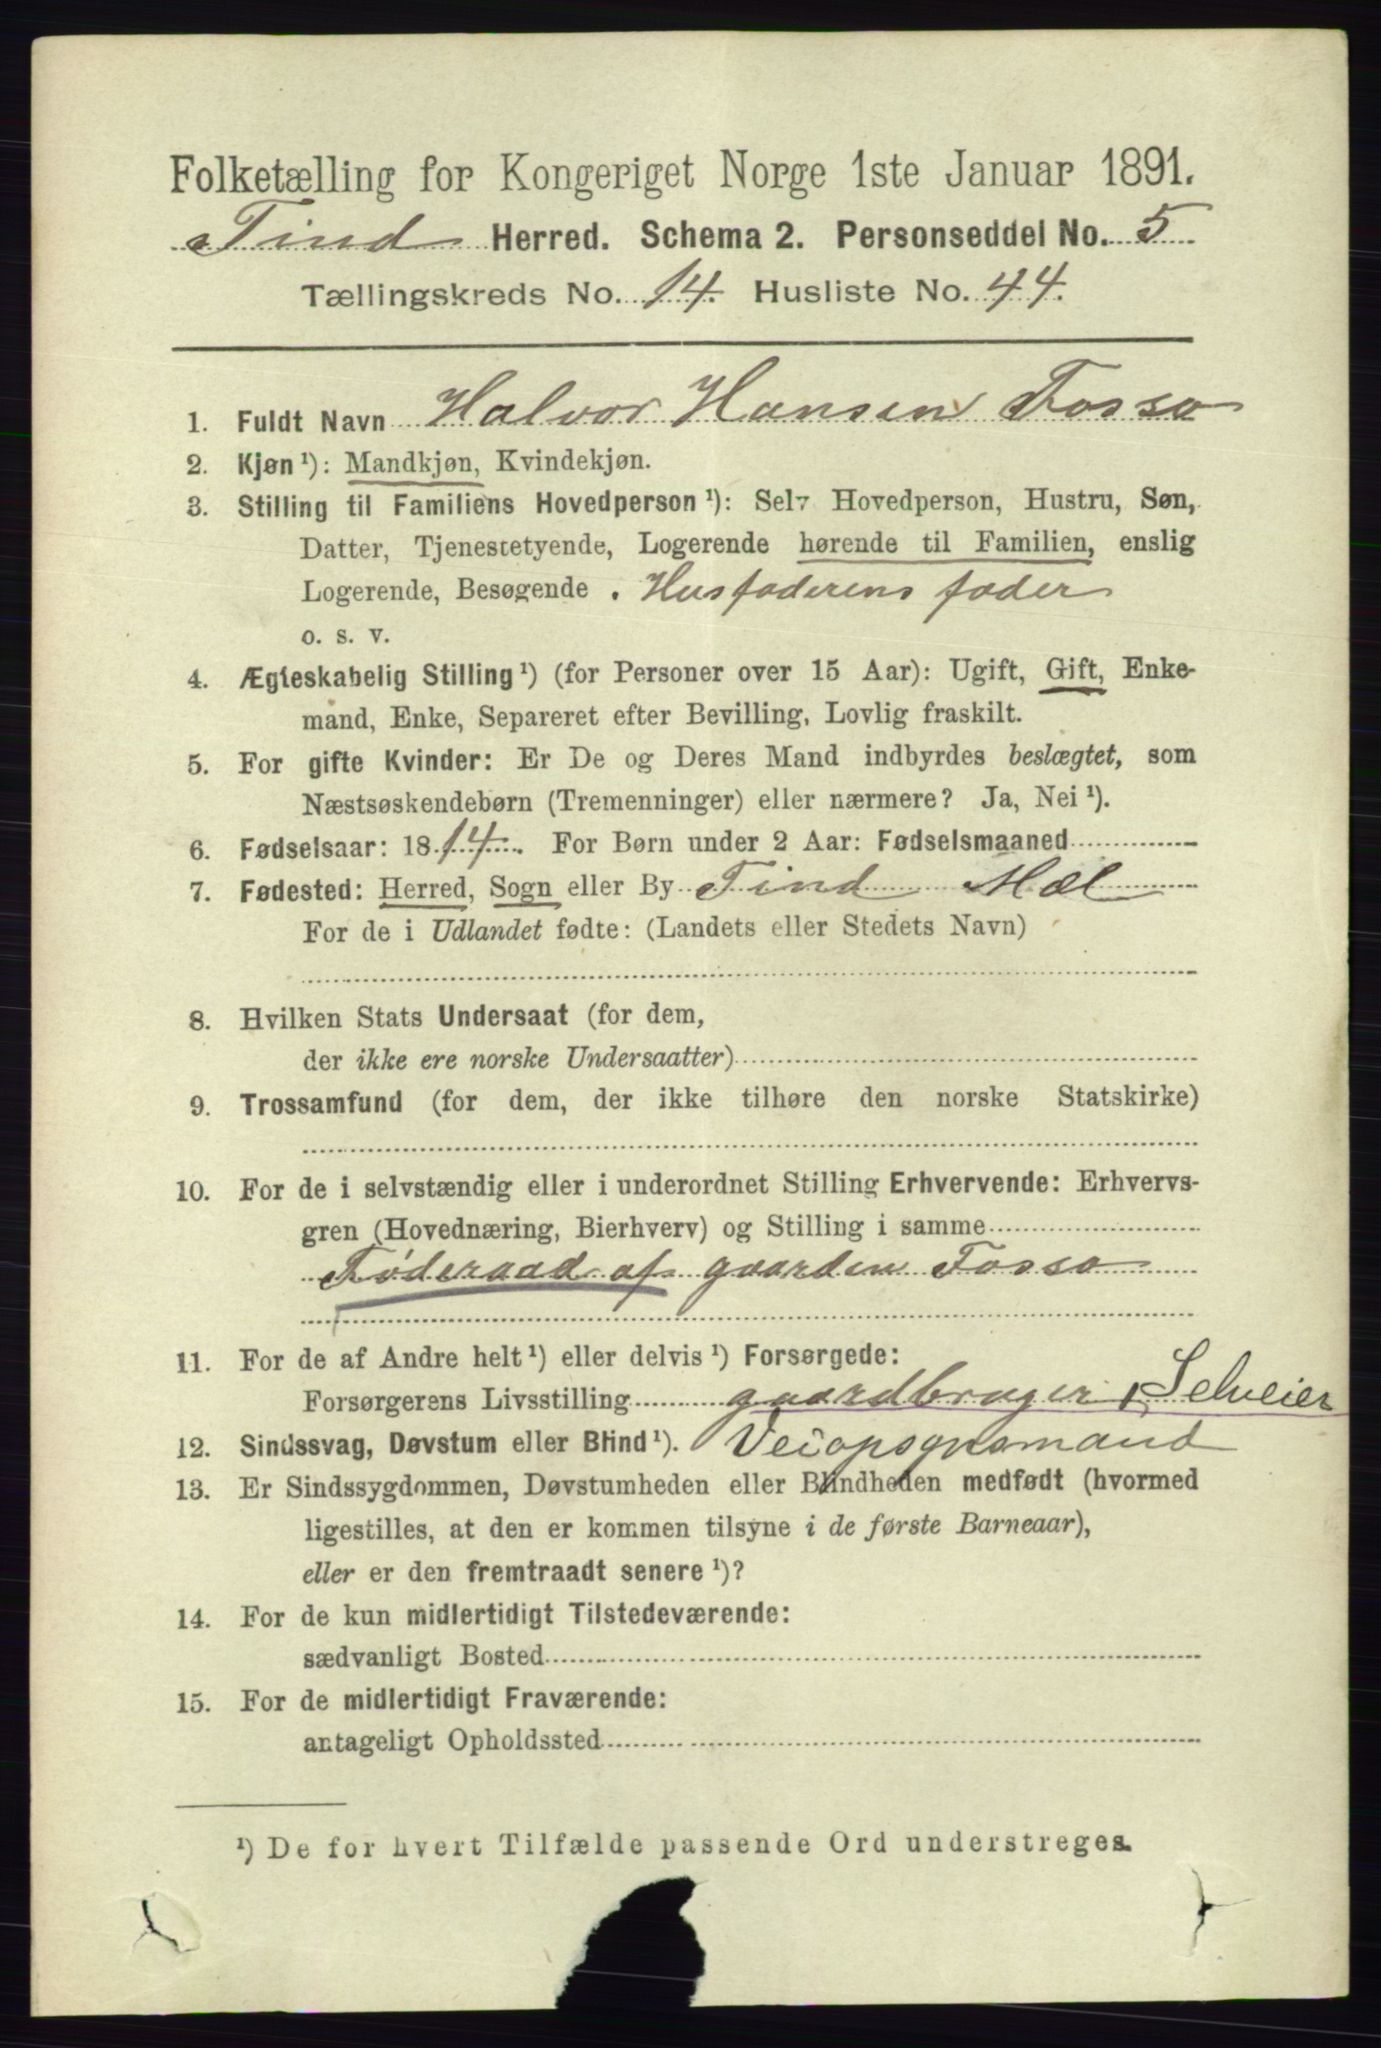 Folketælling for Kongeriget Norge 1ste Januar 1891.
Tind Herred. Schema 2. Personseddel No. 5
Tællingskreds No. 14. Husliste No. 44.
1. Fuldt Navn Halvor Hansen Fosso
2. Kjøn ¹): Mandkjøn, Kvindekjøn.
3. Stilling til Familiens Hovedperson ¹): Selv Hovedperson, Hustru, Søn,
Datter, Tjenestetyende, Logerende hørende til Familien, enslig
Logerende, Besøgende . Husfaderens fader
o. s. v.
4. Ægteskabelig Stilling ¹) (for Personer over 15 Aar): Ugift, Gift, Enke-
mand, Enke, Separeret efter Bevilling, Lovlig fraskilt.
5. For gifte Kvinder: Er De og Deres Mand indbyrdes beslægtet, som
Næstsøskendebørn (Tremenninger) eller nærmere? Ja, Nei ¹).
6. Fødselsaar: 1814. For Børn under 2 Aar: Fødselsmaaned
7. Fødested: Herred, Sogn eller By Tind Mæl
For de i Udlandet fødte: (Landets eller Stedets Navn)
8. Hvilken Stats Undersaat (for dem,
der ikke ere norske Undersaatter)
9. Trossamfund (for dem, der ikke tilhøre den norske Statskirke)
10. For de i selvstændig eller i underordnet Stilling Erhvervende: Erhvervs-
gren (Hovednæring, Bierhverv) og Stilling i samme
Føderaad af gaarden Fosso
11. For de af Andre helt ¹) eller delvis ¹) Forsørgede:
Forsørgerens Livsstilling gaardbruger, Selveier
12. Sindssvag, Døvstum eller Blind ¹). Veiopsynsmand
13. Er Sindssygdommen, Døvstumheden eller Blindheden medfødt (hvormed
ligestilles, at den er kommen tilsyne i de første Barneaar),
eller er den fremtraadt senere ¹)?
14. For de kun midlertidigt Tilstedeværende:
sædvanligt Bosted
15. For de midlertidigt Fraværende:
antageligt Opholdssted
¹) De for hvert Tilfælde passende Ord understreges.